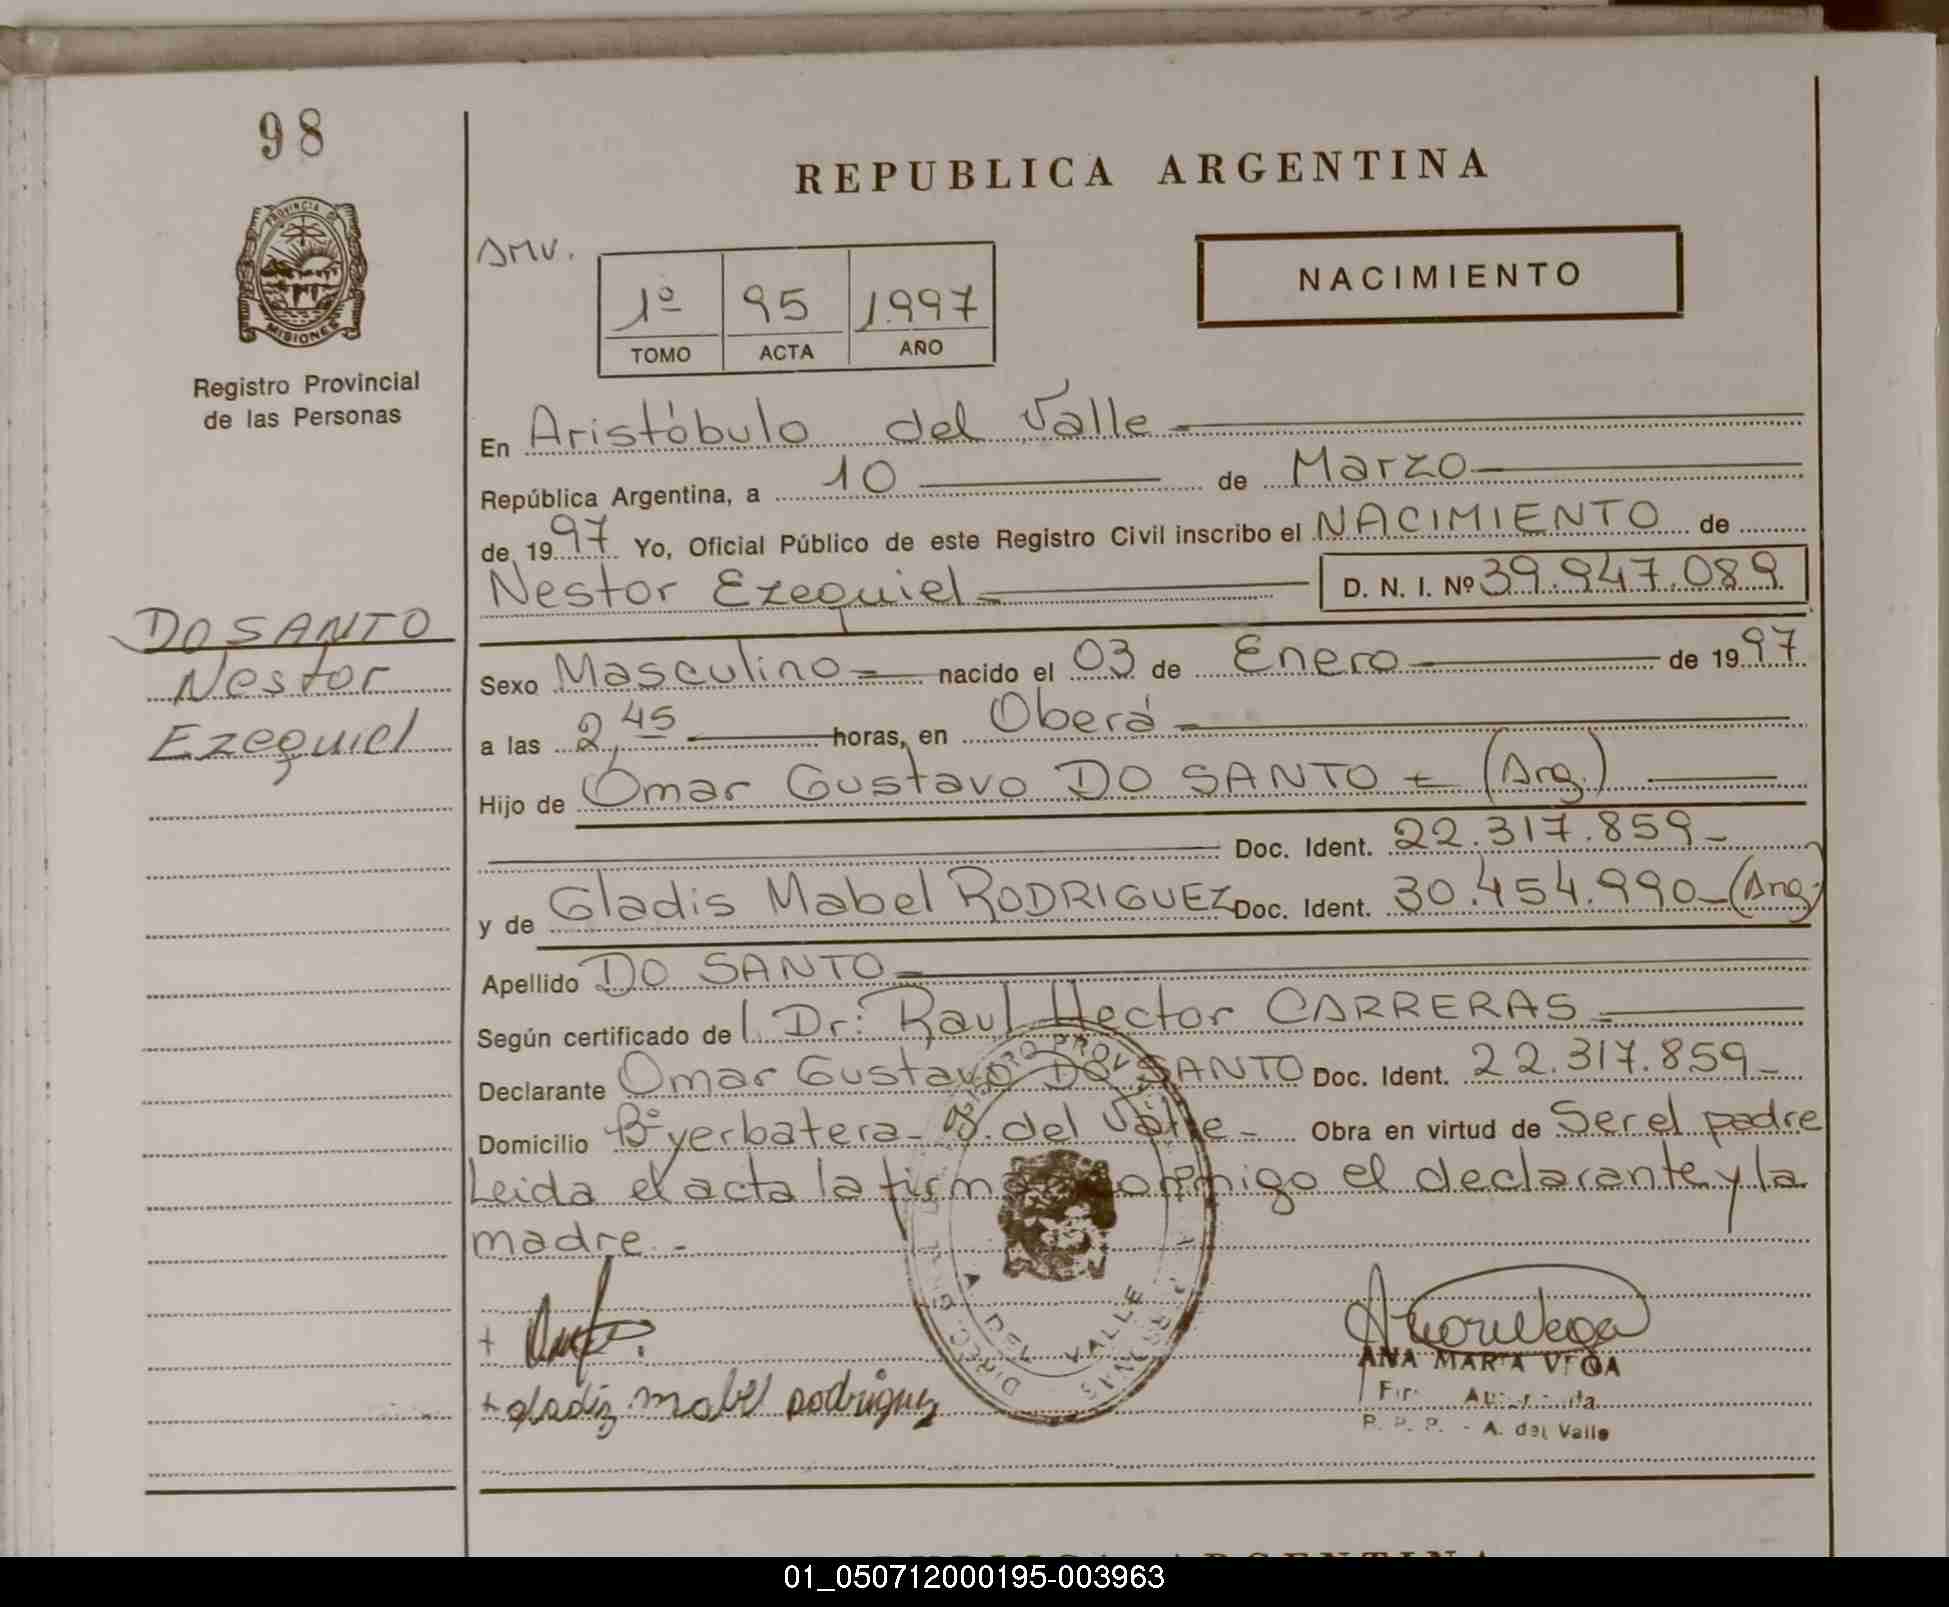 98
PROVINCIA DE
MISIONES
Registro Provincial
de las Personas
DO SANTO
Nestor
Ezequiel
REPUBLICA ARGENTINA
AMV.
1º 95 1997
TOMO ACTA AÑO
NACIMIENTO
En Aristóbulo del Valle
República Argentina, a 10 de Marzo
de 1997 Yo, Oficial Público de este Registro Civil inscribo el NACIMIENTO de
Nestor Ezequiel D. N. I. Nº 39.947.089
Sexo Masculino nacido el 03 de Enero de 1997
a las 2,45 horas, en Oberá
Hijo de Omar Gustavo DO SANTO (Arg.)
Doc. Ident. 22.317.859
y de Gladis Mabel RODRIGUEZ Doc. Ident. 30.454.990 (Arg.)
Apellido DO SANTO
Según certificado de l Dr. Raul Hector CARRERAS
Declarante Omar Gustavo DO SANTO Doc. Ident. 22.317.859
Domicilio Bº yerbatera - A. del Valle - Obra en virtud de Ser el padre
Leida el acta la firman conmigo el declarante y la
madre.-
A. DEL VALLE
+ gladiz mabel rodriguez
ANA MARIA VEGA
R. P. P. - A. del Valle
01_050712000195-003963